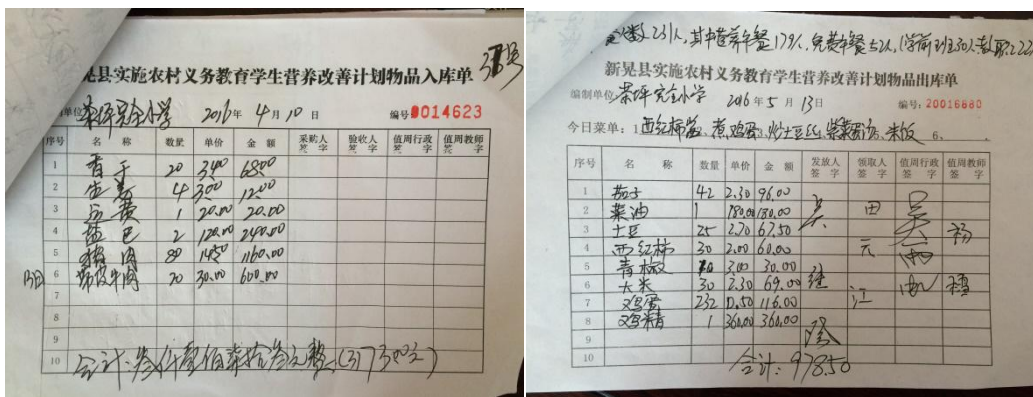 新晃县实施农村义务教育学生营养改善计划物品入库单
单位 茶坪完全小学 2016年4月10日 编号 0014623
序号 名称 数量 单价 金额 采购人签字 验收人签字 值周行政签字 值周教师签字
1 香干 20 3.40 68.00
2 生姜 4 3.00 12.00
3 20.00 20.00
4 2 120.00 240.00
5 猪肉 80 14.50 1160.00
6 牛肉 20 30.00 600.00
7
8
9
10 合计:
人数231人,其中营养午餐179人,免费午餐52人,(学前班30人
新晃县实施农村义务教育学生营养改善计划物品出库单
编制单位 茶坪完全小学 2016年5月13日 编号:20016880
今日菜单:1西红柿 、煮鸡蛋、炒土豆丝、紫菜 汤、米饭 6、
序号 名称 数量 单价 金额 发放人签字 领取人签字 值周行政签字 值周教师签字
1 茄子 42 2.30 96.00
2 菜油 1 180.00 180.00
3 土豆 25 2.70 67.50
4 西红柿 30 2.00 60.00
5 青椒 10 3.00 30.00
6 大米 30 2.30 69.00
7 鸡蛋 232 0.50 116.00
8 鸡精 1 360.00 360.00
9
10 合计:978.50